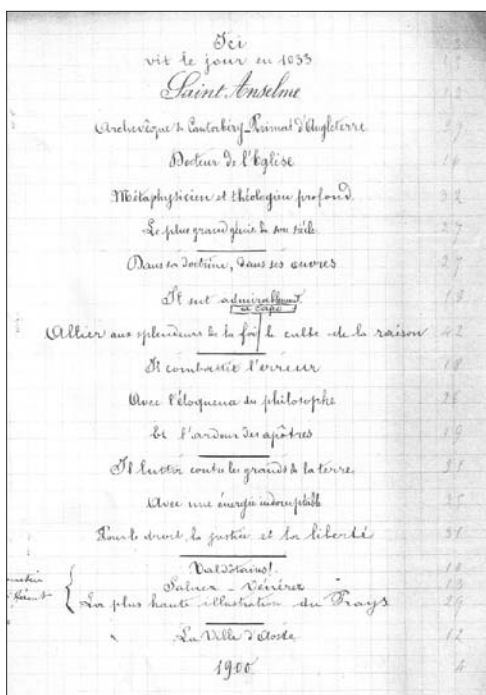 Ici
vit le jour en 1033
Saint Anselme
Archevêque de Cantorbéry _ Primat d'Angleterre
Docteur de l'Eglise
Métaphysicien et théologien profond.
Le plus grand génie de son siècle
Dans sa doctrine, dans ses œuvres
Il sut admirablement
a capo
Allier aux splendeurs de la foi le culte de la raison 42
Il combattit l'erreur 18
Avec l'éloquence du philosophe
Et l'ardeur des apôtres 19
Il lutta contre les grands de la terre
Avec une énergie indomptable
Pour le droit, la justice et la liberté
Valdôtains!
Saluez _ Vénérez
La plus haute illustration du Pays
La Ville d'Aoste 12
1900 4